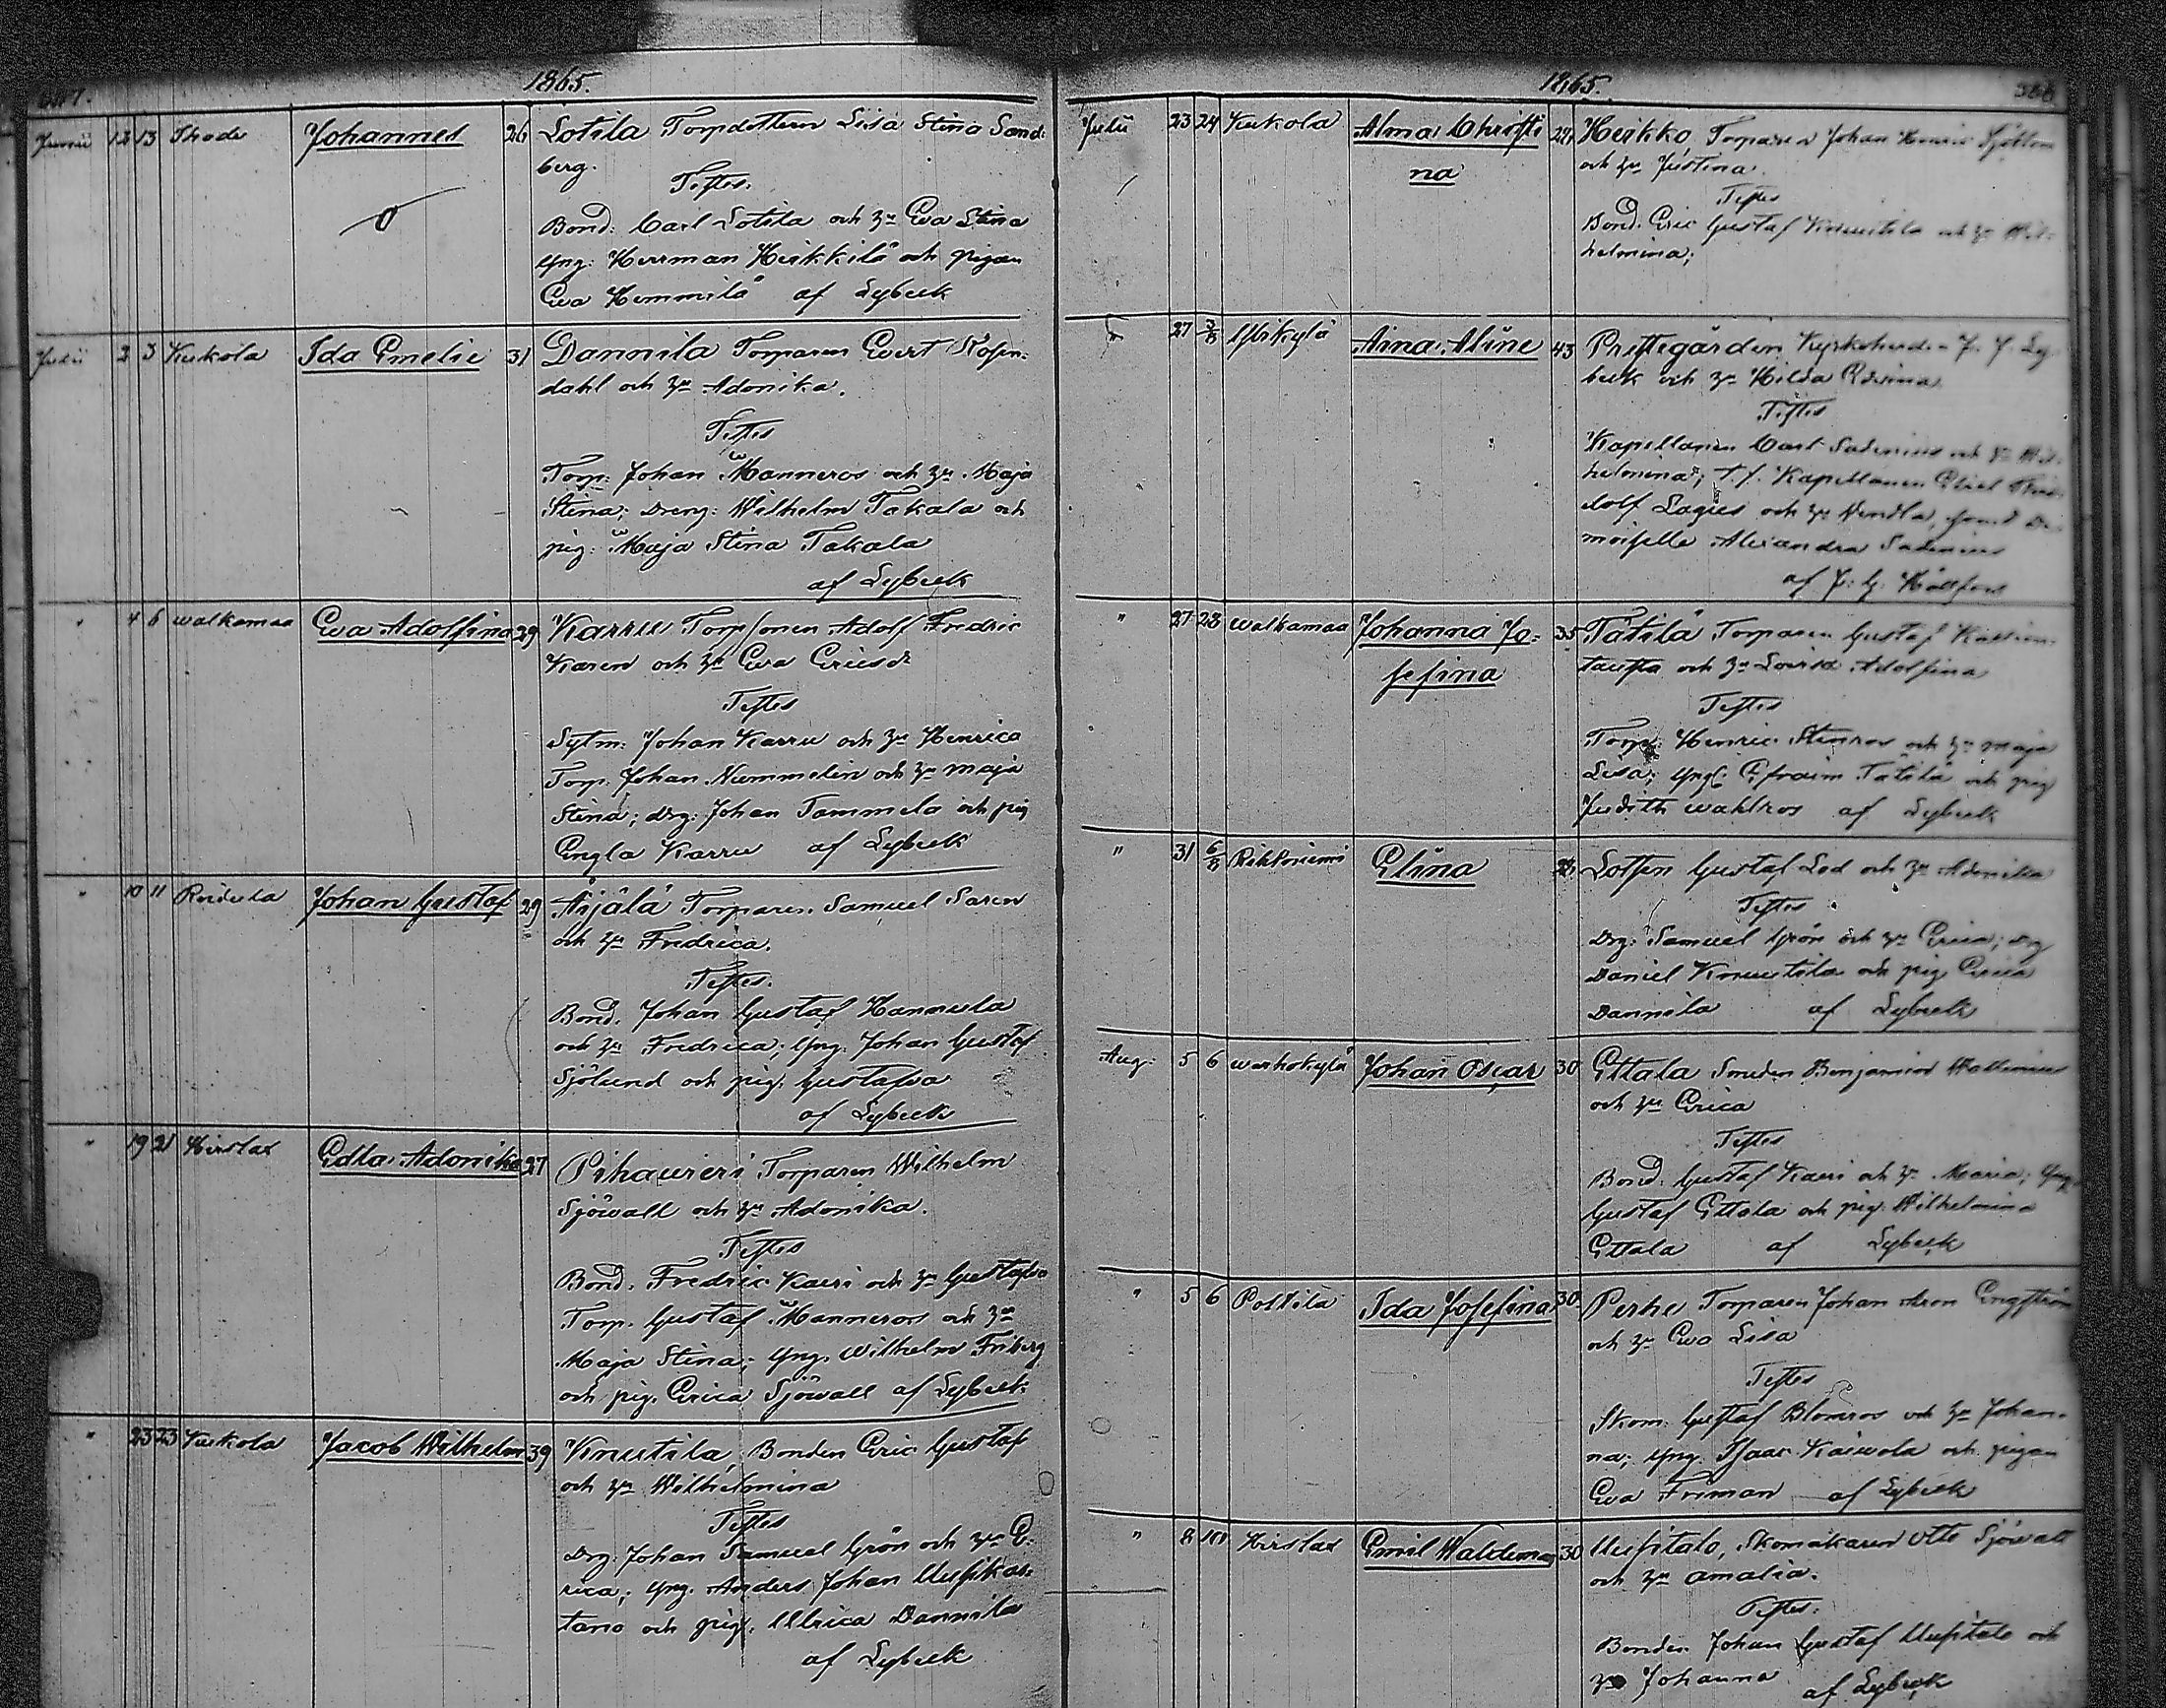 1865.
Junii 12 13 Thade Johannes 26 Lotila Torpdottern Lisa Stina Sand-
berg.
Testes.
Bond. Carl Lotila och hu Eva Stina
yng: Herrman Heikkilä och pigan
Eva Hemmilä af Lybeck
Julii 2 3 Kukola Ida Emelie 31 Dannila Torparen Evert Rosen-
dahl och hu Adonika.
Testes
Torp: Johan Manneros och hu Maja
Stina; Dreng: Wilhelm Takala och
pig: Maja Stina Takala
af Lybeck
" 4 6 walkamaa Eva Adolfina 29 Karru Torpsonen Adolf Fredric
Karen och hu Eva Ericsdr
Testes
Sytm: Johan Karru och hu Henrica
Torp. Johan Nummelin och hu Maja
Stina; drg: Johan Tammela och pig
Engla Karru af Lybeck
" 10 11 Johan Gustaf 29 Äijälä Torparen Samuel Saren
och hu Fredrica.
Testes.
Bond. Johan Gustaf Hannula
och hu Fredrica; yng. Johan Gustaf
Sjölund och pig: Gustafva
af Lybeck
" 19 21 Hirslax Edla Adonika 27 Pihauieri Torparen Wilhelm
Sjöwall och hu Adonika.
Testes
Bond. Fredric Kauri och hu Gustafva
Torp. Gustaf Manneros och hu
Maja Stina; yng. Wilhelm Friberg
och pig. Erica Sjöwall af Lybeck
" 23 23 Kukola Jacob Wilhelm 39 Knutila, Bonden Eric Gustaf
och hu Wilhelmina
Testes
Drg: Johan Samuel Grön och hu E-
rica; yng. Anders Johan Uusikar-
tano och pig. Ulrica Dannila
af Lybeck
1865. 388
Julii 23 24 Kukola Alma Christi- Heikko, Torparen Johan Henric Sjöblom
na och hu Justina.
Testes
Bond. Eric Gustaf Knuutila och hu Wil-
helmina;
27 Ylikylä Aina Aline 43 Prestegården Kyrkoherden J. J. Ly-
beck och hu Hilda
Testes
Kapellanen Carl Sadenius och hu Wil-
helmina; t.f. Kapellanen
dolf Lagus och hu Wendla, samt De-
moiselle Alexandra Sadenius
af J. G. Hällfors
" 27 28 walkamaa Johanna Jo- 35 Tätilä Torparen Gustaf
sefina och hu Lovisa Adolfina
Testes
Torp: Henric Stenros och hu Maja
Lisa; yngl: Efraim Tätilä och pig
Judith Wahlros af Lybeck
" 31 6/8 Rikkoniemi Elina Lotsen Gustaf Lod och hu Adonika
Testes
Drg: Samuel Grön och hu Erica; drg
Daniel Knuutila och pig Erica
Dannila af Lybeck
Aug: 5 6 warhokylä Johan Oscar 30 Ettala Smeden Benjamin Wallenius
och hu Erica
Testes
Bond. Gustaf Kauri och hu Maria; yng.
Gustaf Ettala och pig. Wilhelmina
Ettala af Lybeck
" 5 6 Pottila Ida Josefina 30 Perhe Torparen Johan Aron Engström
och hu Eva Lisa
Testes
Skom. Gustaf Blomros och hu Johan-
na; yng. Isaac Kaiwola och pigan
Eva Friman af Lybeck
" 8 Hirslax Emil Waldemar 30 Uusitalo, Skomakaren Otto Sjöwall
och hu Amalia.
Testes.
Bonden Johan Gustaf Uusitalo och
hu Johanna af Lybeck